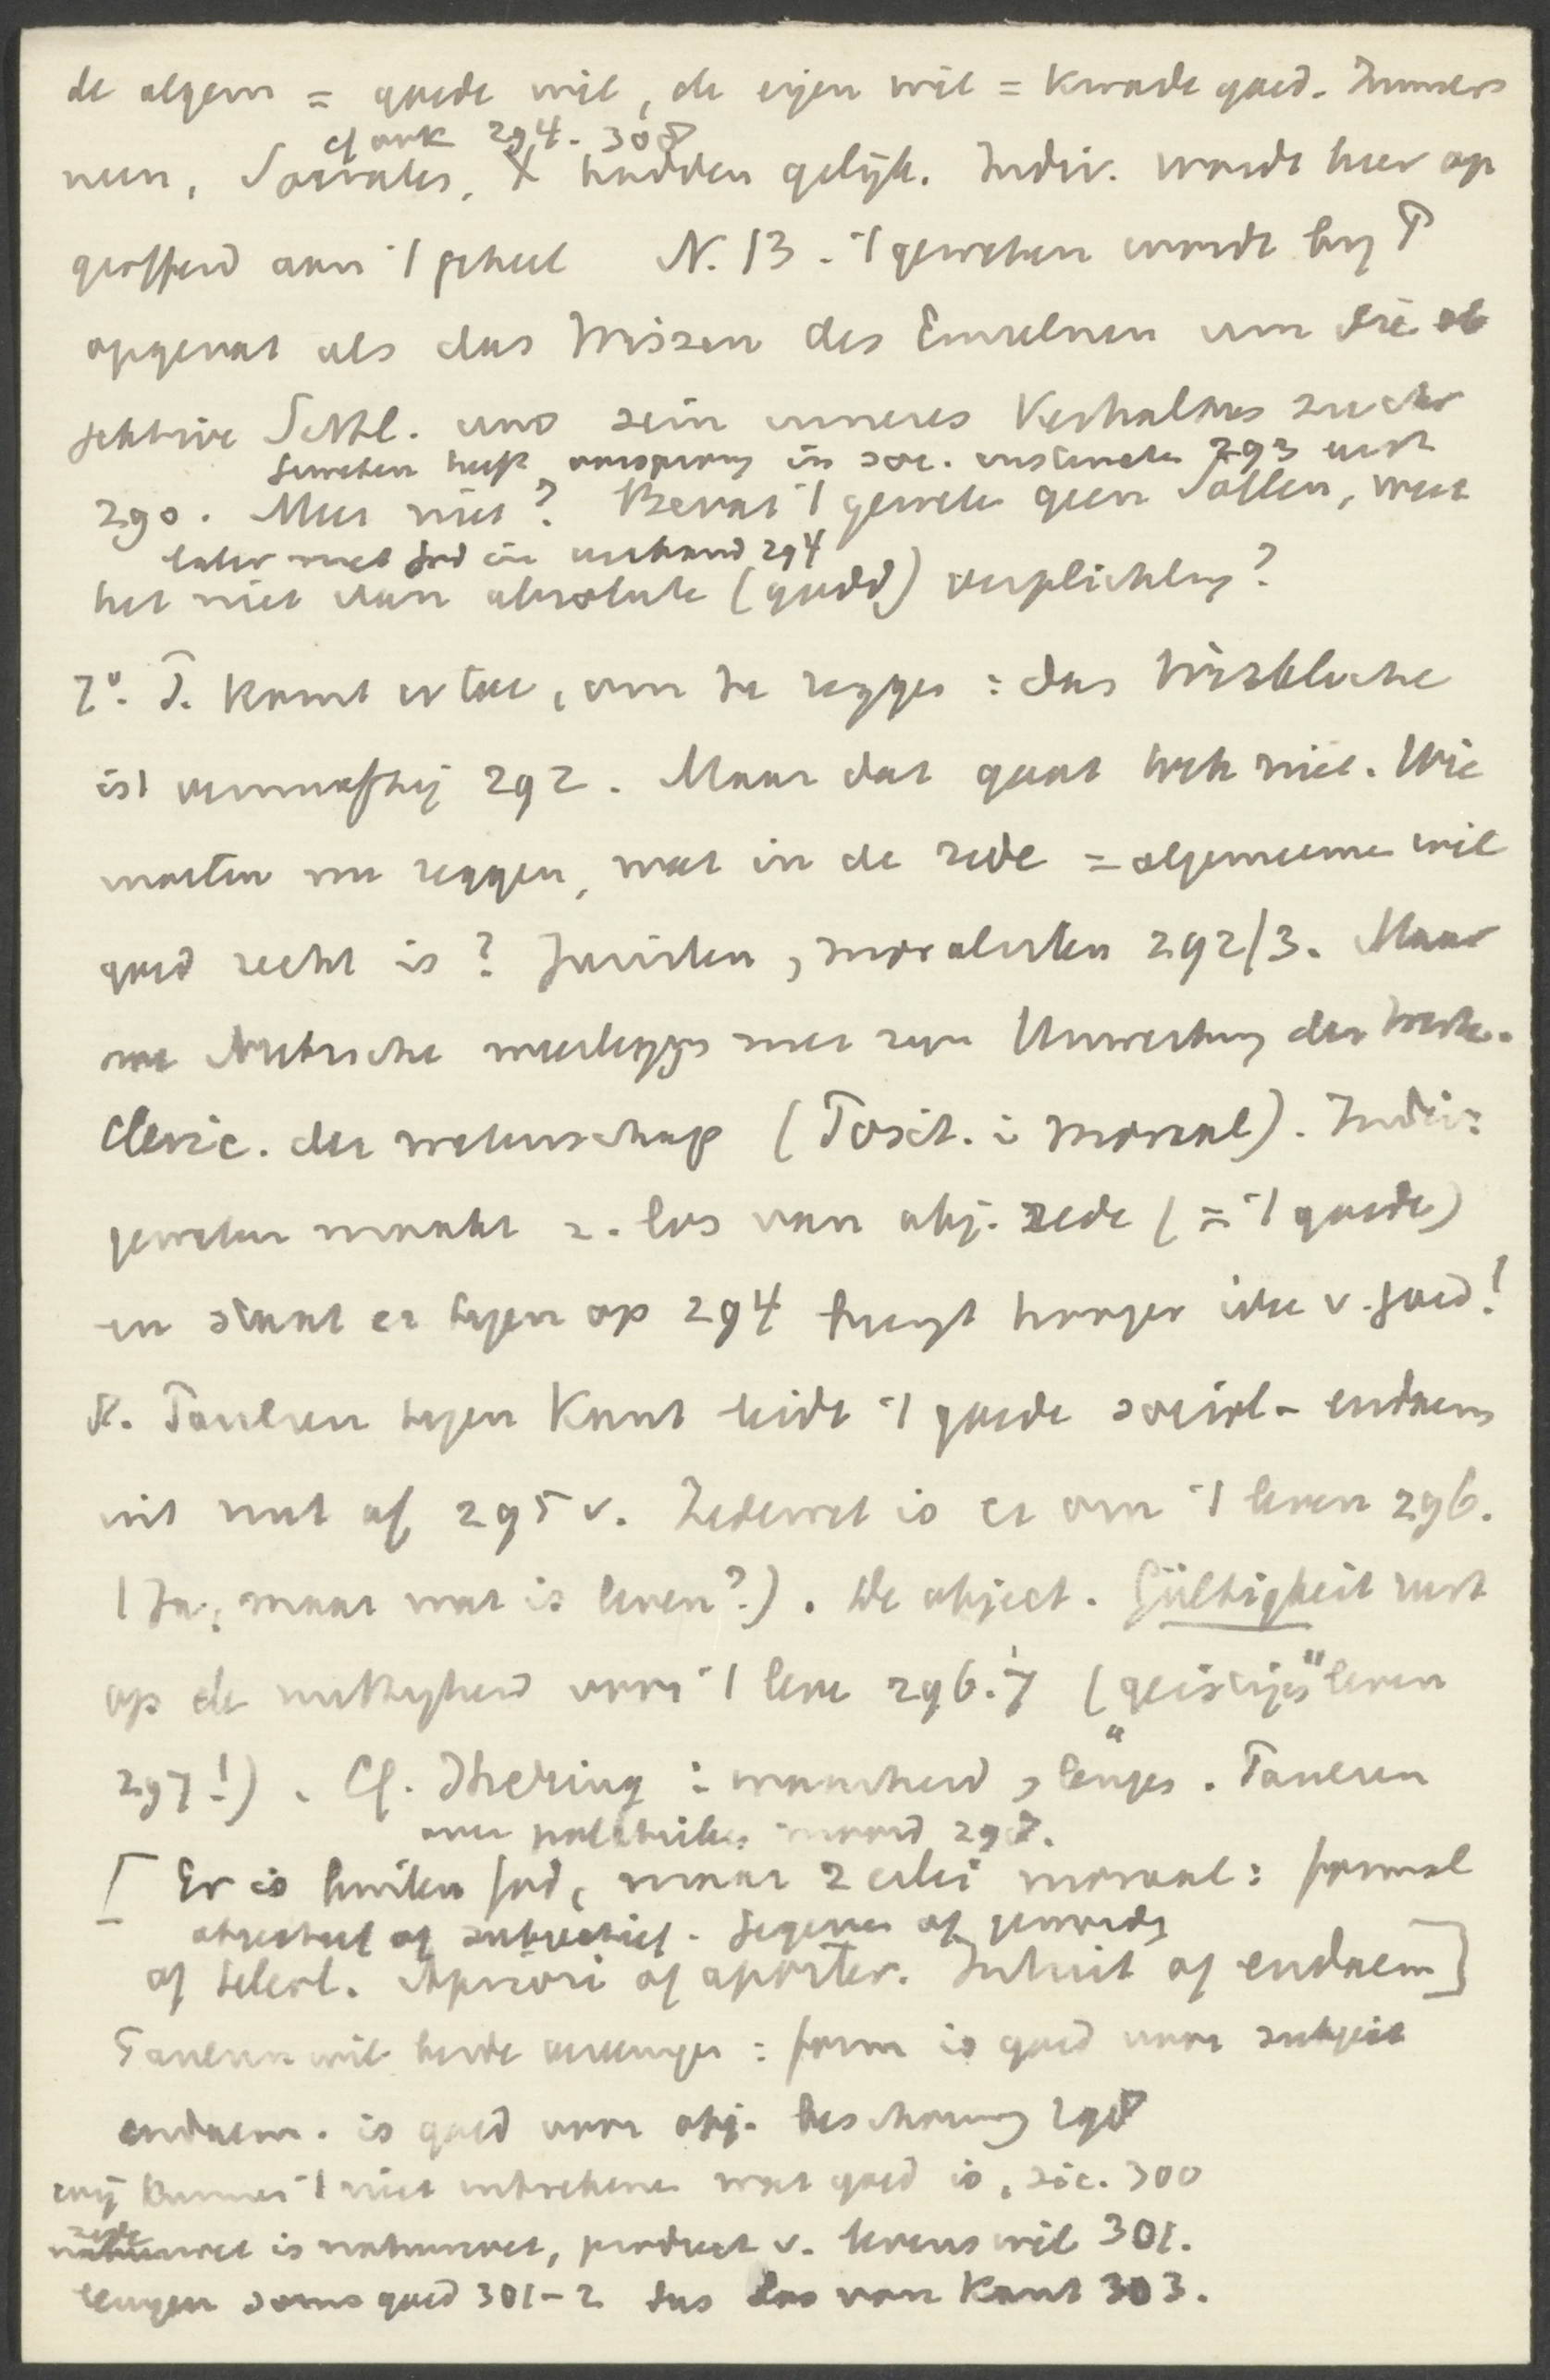 de algem = goede wil, de eigen wil = kwade goed. Immers
cf ook 294. 308
neen, Socrates, X hadden gelijk. Indiv. wordt hier op
geofferd aan 't geheel N. 13. 't geweten wordt bij P
opgevat als das Wissen des Einzelnen um die ob
jektive Sittl. und sein inneres Verhältnis zu der
Geweten heeft oorsprong in soc. instincten 293 eerst
290. Meer niet? Bevat 't geweten geen Sollen, weet
later met God in verband 294
het niet van absolute (godd) verplichting?
7°. P. komt er toe, om te zeggen: das Wirkliche
ist vernünftig 292. Maar dat gaat toch niet. Wie
moeten nu zeggen, wat in de zede = algemeene wil
goed recht is? Juristen, moralisten 292/3. Maar
nu Nietzsche weerleggen met zijn Umwertung der Werte.
Cleric. der wetenschap (Posit. i moraal). Indiv.
geweten maakt z. los van obj. zede (= 't goede)
en staat er tegen op 294 brengt hooger idee v. goed!
8. Paulsen tegen Kant leidt 't goede sociel-eudaem
uit nut af 295 v. Zedewet is er om 't leven 296.
(Ja, maar wat is leven?). De object. Gültigkeit rust
op de nuttigheid voor 't leven 296.7 (geistiges leven
297!). Cf. Ihering: waarheid, leugen. Paulsen
over politieken moord 298.
[ Er is buiten God, maar 2 erlei moraal: formal
objectief of subjectief. Segens of
of teleol. Apriori of aposter. Intuit of eudaem]
Paulsen wil beide vereenigen: form is goed voor subject
eudaem. is goed voor obj. beschouwing 298
wij kunnen 't niet uitrekenen wat goed is, sic. 300
zede
natuurwet is natuurwet, product v. levenswil 301.
leugen soms goed 301-2 dus los van Kant 303.